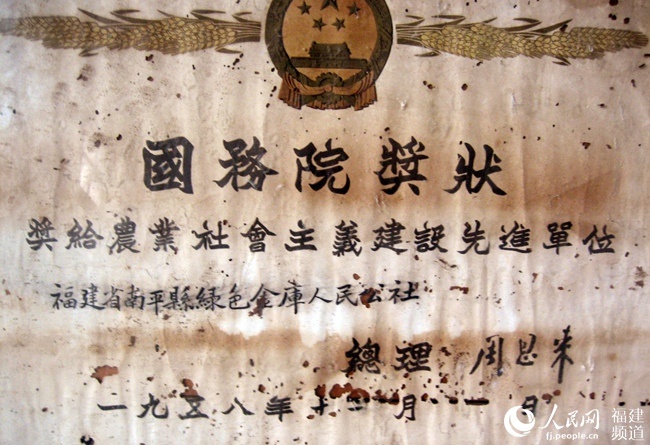 國務院獎狀
獎給農業社會主義建設先進單位
福建省南平縣綠色金庫人民公社
總理 周恩来
一九五八年十二月 日
人民网 福建频道
fj.people.cn